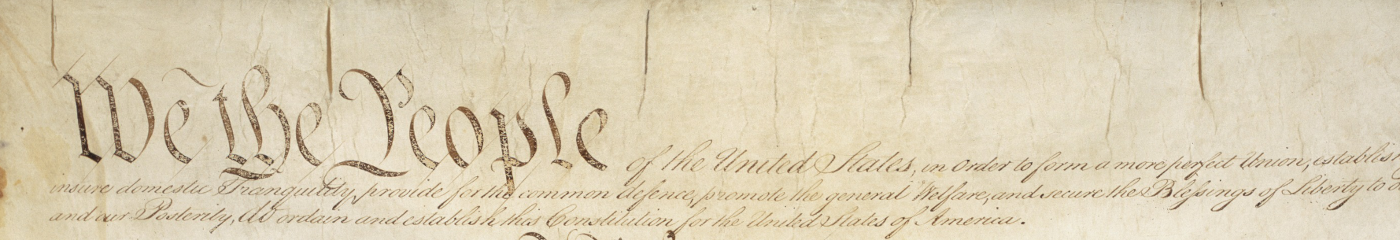 We the People of the United States, in Order to form a more perfect Union, establis
insure domestic Tranquility, provide for the common defence, promote the general Welfare, and secure the Blessings of Liberty to
and our Posterity, do ordain and establish this Constitution for the United States of America.